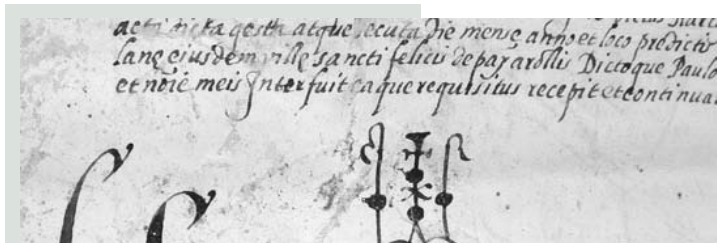 acta dicta gesta atque secuta die mense anno et loco predictis
lane ejusdem ville sancti felicis de payarollis Dictoque Paulo
et noīe meis Interfuit eaque requisitus recepit et continua